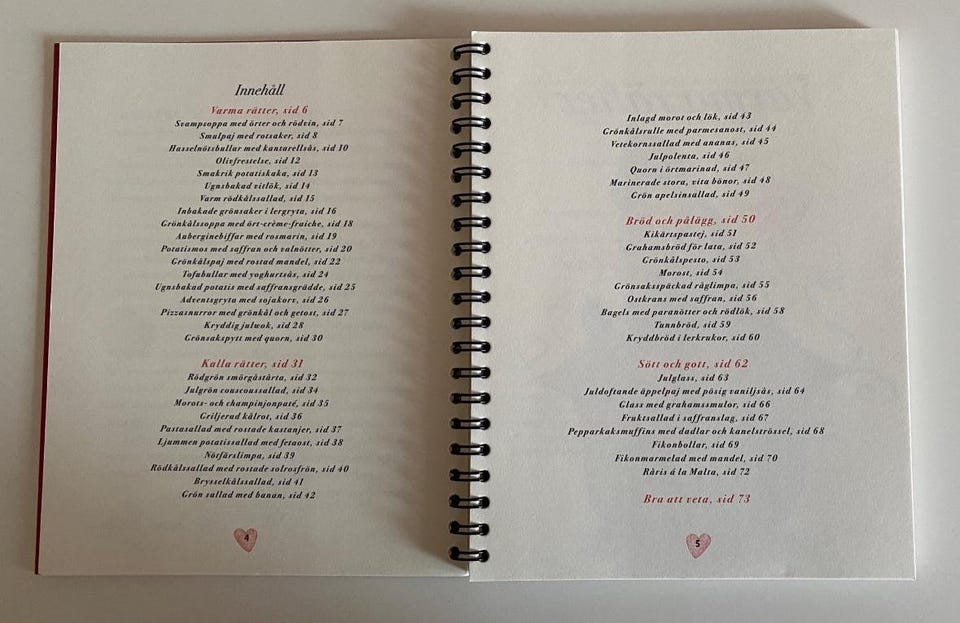 Innehåll
Varma rätter, sid 6
Svampsoppa med örter och rödvin, sid 7
Smulpaj med rotsaker, sid 8
Hasselnötsbullar med kantarellsås, sid 10
Olivfrestelse, sid 12
Smakrik potatiskaka, sid 13
Ugnsbakad vitlök, sid 14
Varm rödkålssallad, sid 15
Inbakade grönsaker i lergryta, sid 16
Grönkålssoppa med ört-crème-fraiche, sid 18
Auberginebiffar med rosmarin, sid 19
Potatismos med saffran och valnötter, sid 20
Grönkålspaj med rostad mandel, sid 22
Tofubullar med yoghurtsås, sid 24
Ugnsbakad potatis med saffransgrädde, sid 25
Adventsgryta med sojakorv, sid 26
Pizzasnurror med grönkål och getost, sid 27
Kryddig julwok, sid 28
Grönsakspytt med quorn, sid 30
Kalla rätter, sid 31
Rödgrön smörgåstårta, sid 32
Julgrön couscoussallad, sid 34
Morots- och champinjonpaté, sid 35
Griljerad kålrot, sid 36
Pastasallad med rostade kastanjer, sid 37
Ljummen potatissallad med fetaost, sid 38
Nötfärslimpa, sid 39
Rödkålssallad med rostade solrosfrön, sid 40
Brysselkålssallad, sid 41
Grön sallad med banan, sid 42
4
Inlagd morot och lök, sid 43
Grönkålsrulle med parmesanost, sid 44
Vetekornssallad med ananas, sid 45
Julpolenta, sid 46
Quorn i örtmarinad, sid 47
Marinerade stora, vita bönor, sid 48
Grön apelsinsallad, sid 49
Bröd och pålägg, sid 50
Kikärtspastej, sid 51
Grahamsbröd för lata, sid 52
Grönkålspesto, sid 53
Morost, sid 54
Grönsaksspäckad råglimpa, sid 55
Ostkrans med saffran, sid 56
Bagels med paranötter och rödlök, sid 58
Tunnbröd, sid 59
Kryddbröd i lerkrukor, sid 60
Sött och gott, sid 62
Julglass, sid 63
Juldoftande äppelpaj med pösig vaniljsås, sid 64
Glass med grahamssmulor, sid 66
Fruktsallad i saffranslag, sid 67
Pepparkaksmuffins med dadlar och kanelströssel, sid 68
Fikonbollar, sid 69
Fikonmarmelad med mandel, sid 70
Råris á la Malta, sid 72
Bra att veta, sid 73
5